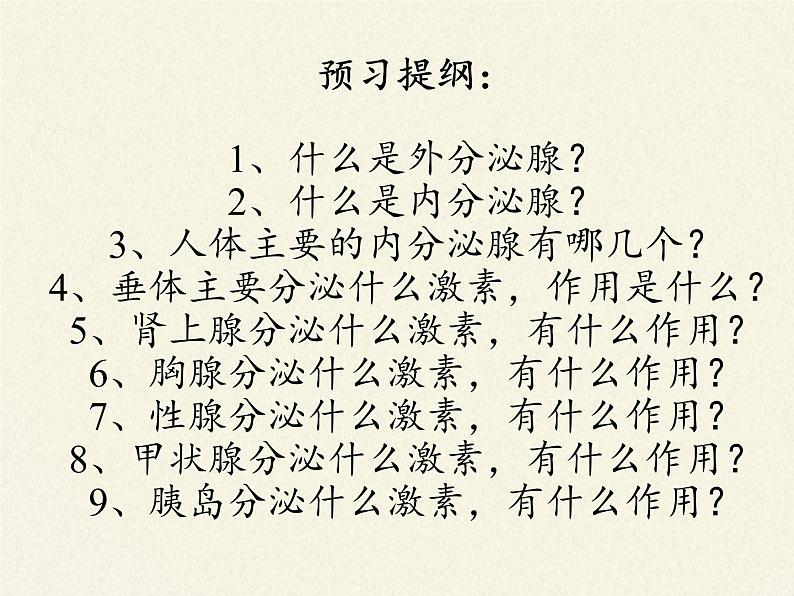 预习提纲：
1、什么是外分泌腺？
2、什么是内分泌腺？
3、人体主要的内分泌腺有哪几个？
4、垂体主要分泌什么激素，作用是什么？
5、肾上腺分泌什么激素，有什么作用？
6、胸腺分泌什么激素，有什么作用？
7、性腺分泌什么激素，有什么作用？
8、甲状腺分泌什么激素，有什么作用？
9、胰岛分泌什么激素，有什么作用？